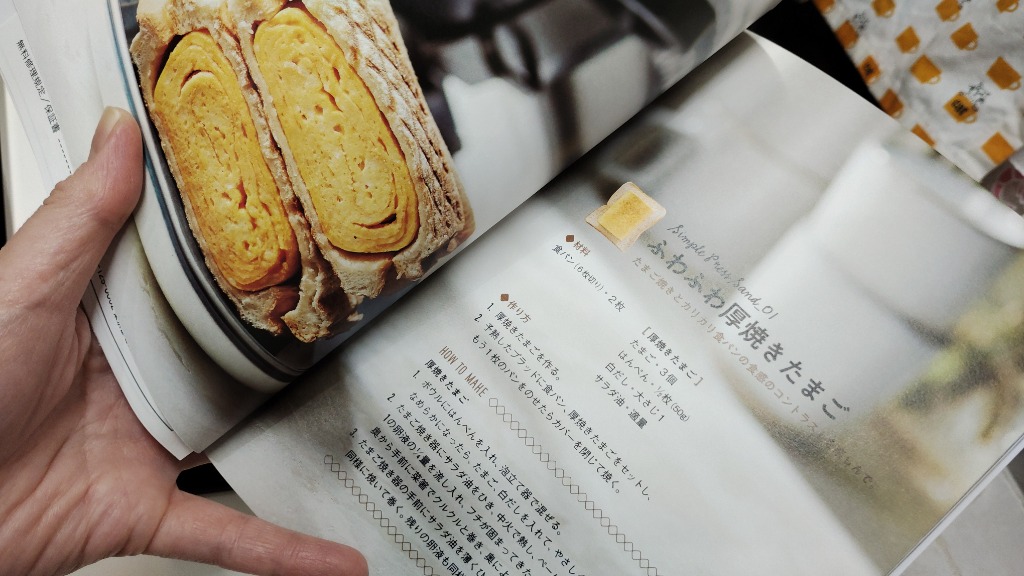 無料修理規定/保証書
Simple Press Sand. 01
ふわふわ厚焼きたまご
たまご焼きとカリカリ食パンの食感のコントラスト
◆材料
食パン(6枚切り)・2枚
[厚焼きたまご]
たまご・3個
はんぺん・½枚(50g)
白だし・大さじ1
サラダ油・適量
◆作り方
1. 厚焼きたまごを作る。
2. 予熱したブラッドに食パン、厚焼きたまごをセットし、
もう1枚のパンをのせたらカバーを閉じて焼く。
HOW TO MAKE
厚焼きたまご
1. ボウルにはんぺんを入れ、泡立て器で混ぜる。
なめらかになったら、たまご、白だしを入れて、やさし
2. たまご焼き器にサラダ油をひき、中火で熱し、ペー
1の卵液の⅓量を流し入れ、フチが固まってきた
奥から手前に菜箸でクルクルと巻き、奥に
3. たまご焼き器の手前にサラダ油を薄くひ
同様に焼いて巻く。残りの卵液も同様